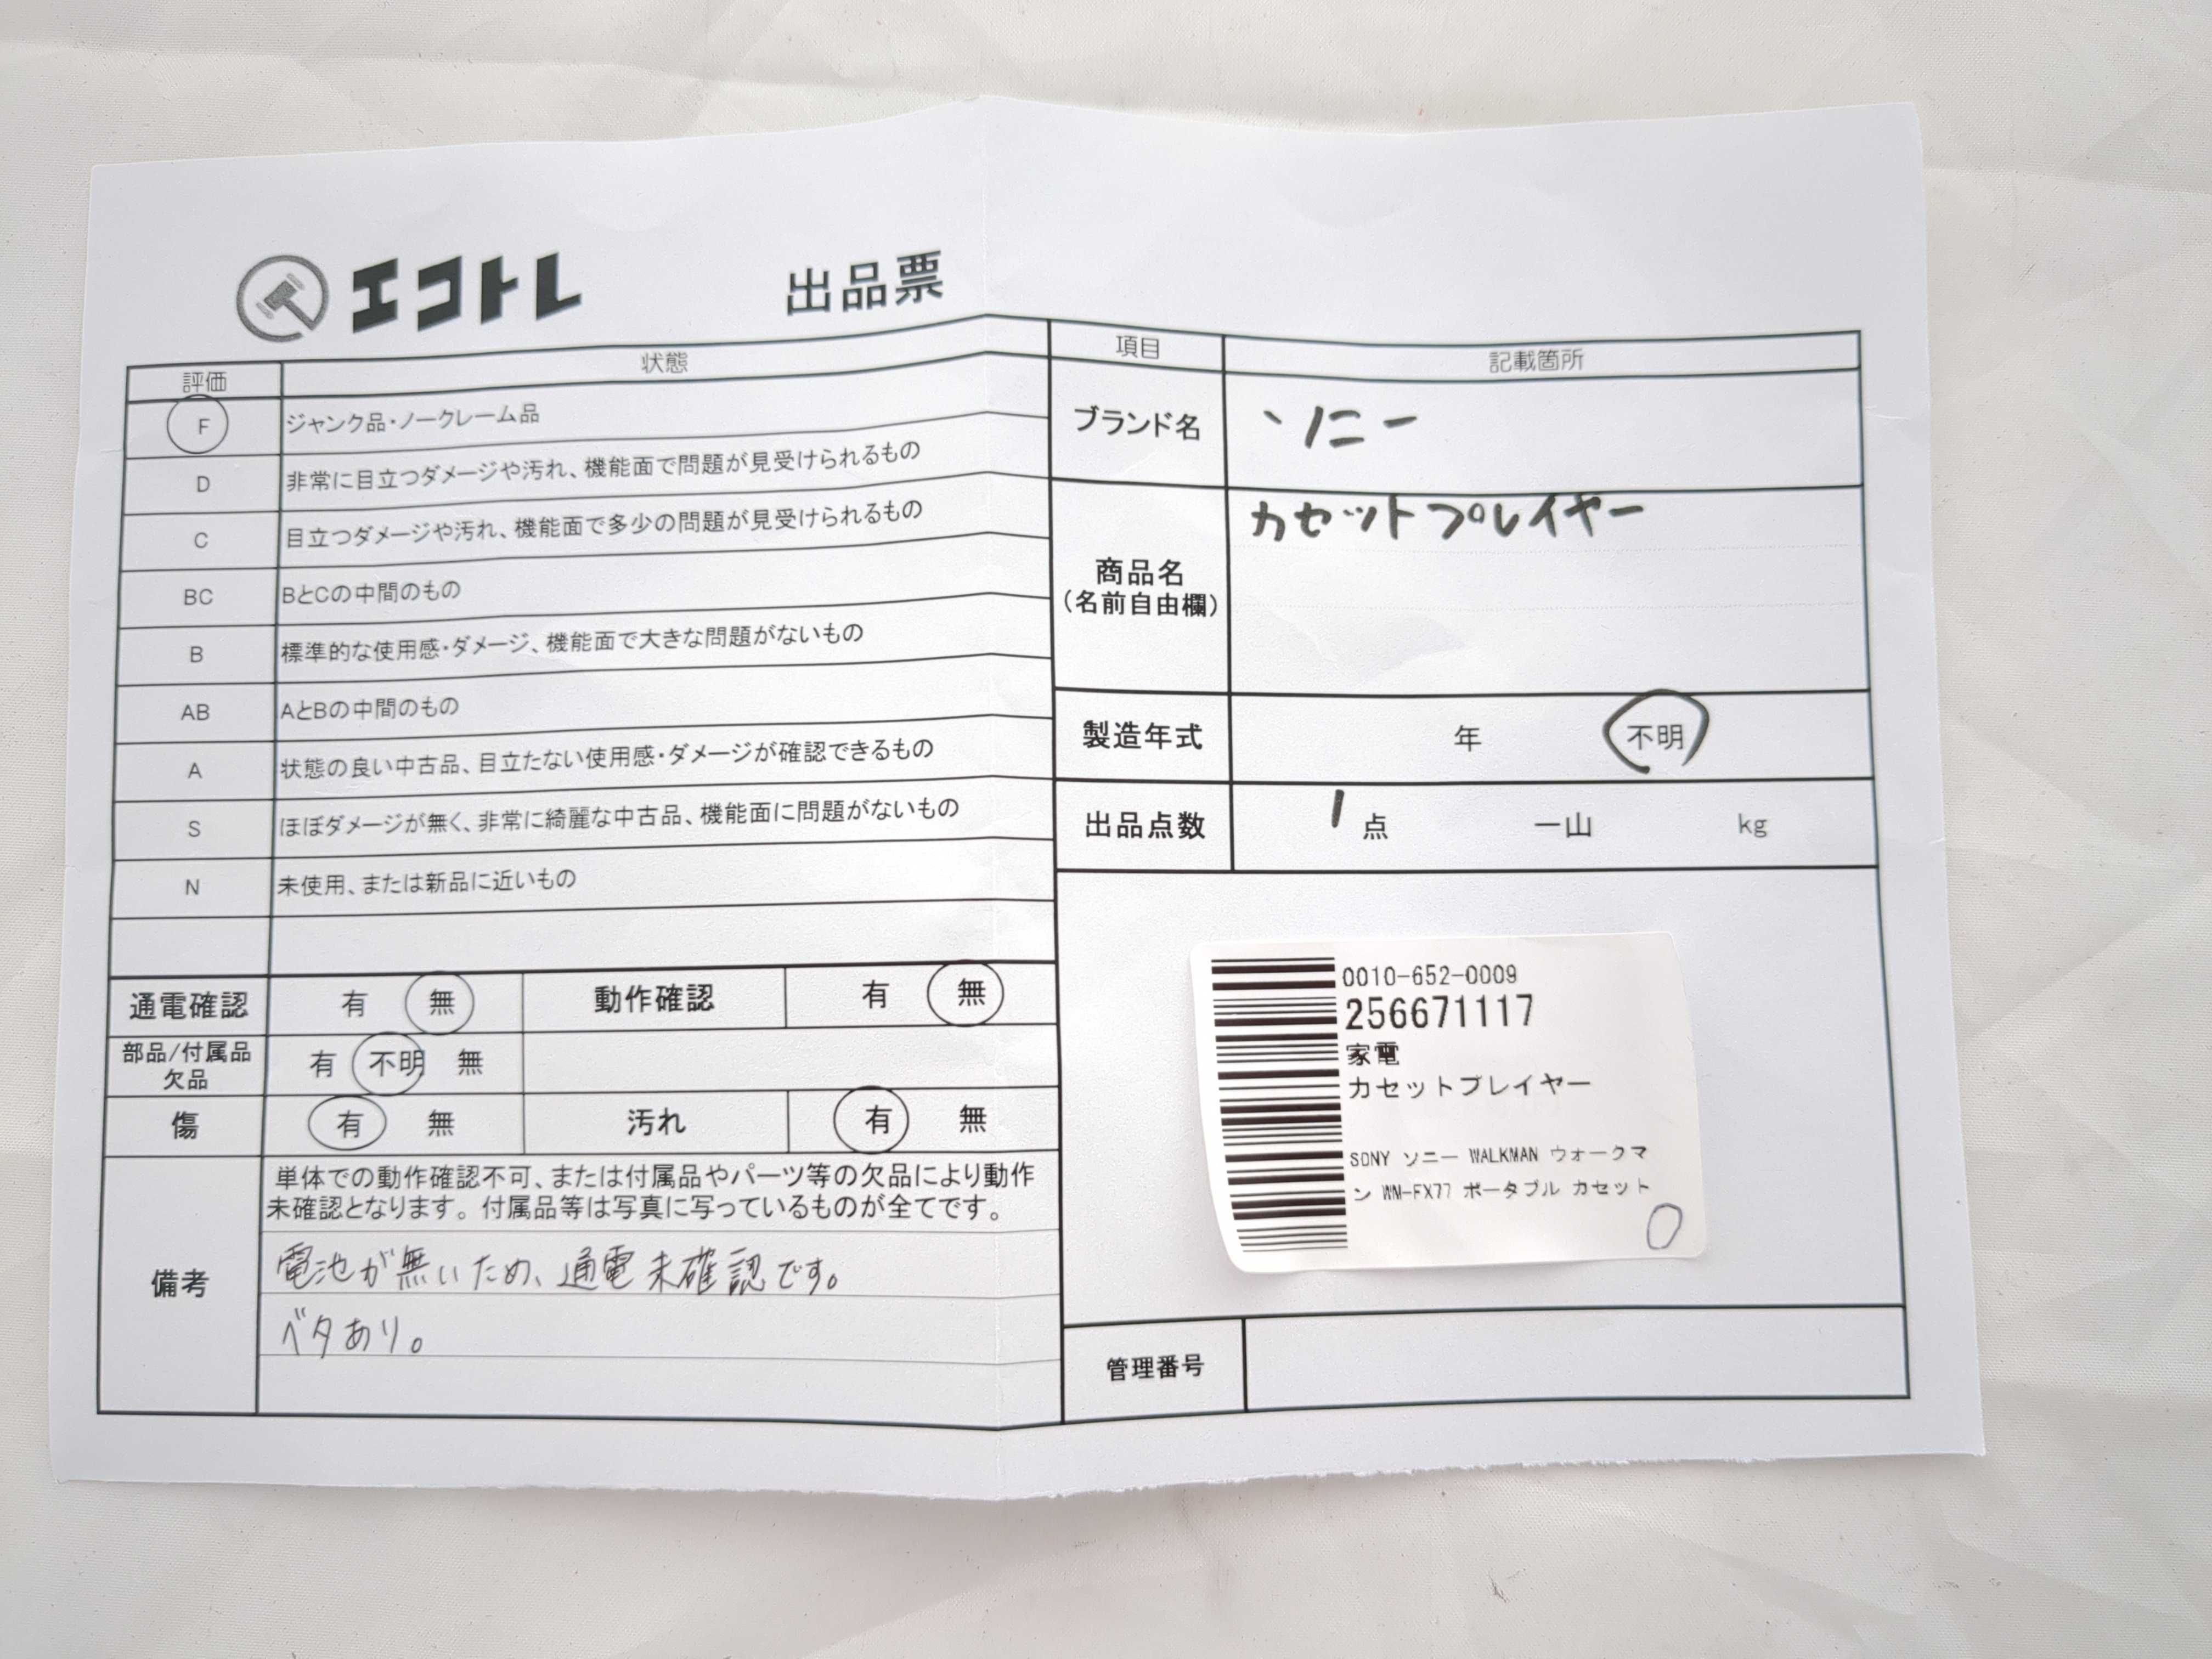 エコトレ 出品票
評価 状態
F ジャンク品・ノークレーム品
D 非常に目立つダメージや汚れ、機能面で問題が見受けられるもの
C 目立つダメージや汚れ、機能面で多少の問題が見受けられるもの
BC BとCの中間のもの
B 標準的な使用感・ダメージ、機能面で大きな問題がないもの
AB AとBの中間のもの
A 状態の良い中古品、目立たない使用感・ダメージが確認できるもの
S ほぼダメージが無く、非常に綺麗な中古品、機能面に問題がないもの
N 未使用、または新品に近いもの
通電確認 有 無 動作確認 有 無
部品/付属品
欠品 有 不明 無
傷 有 無 汚れ 有 無
備考
単体での動作確認不可、または付属品やパーツ等の欠品により動作
未確認となります。付属品等は写真に写っているものが全てです。
電池が無いため、通電未確認です。
ベタあり。
項目 記載箇所
ブランド名 ソニー
商品名
(名前自由欄)
カセットプレイヤー
製造年式 年 不明
出品点数 1点 一山 kg
0010-652-0009
256671117
家電
カセットプレイヤー
SONY ソニー WALKMAN ウォークマ
ン WM-FX77 ポータブル カセット
管理番号